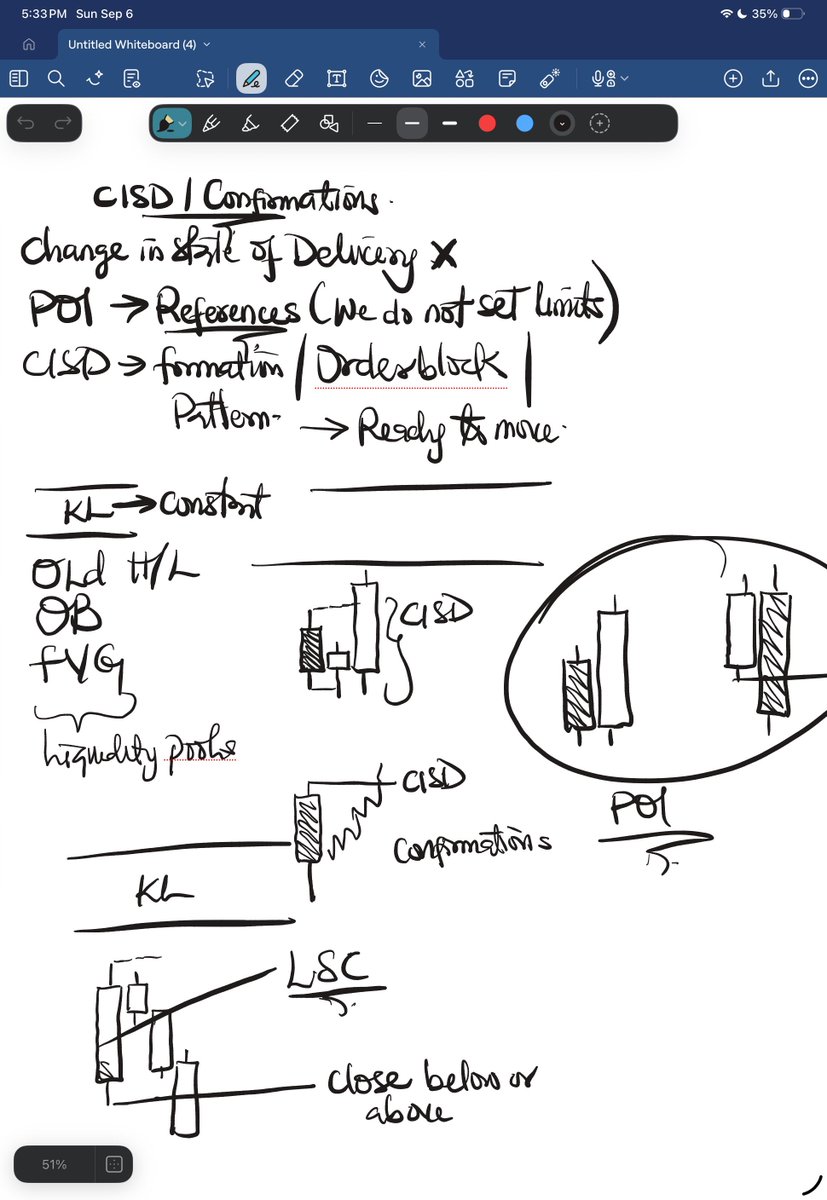 5:33 PM Sun Sep 6
35%
Untitled Whiteboard (4)
CISD | Confirmations.
Change in state of Delivery X
POI → References (We do not set limits)
CISD → formation | Orderblock |
Pattern → Ready to move.
KL → Constant
Old H/L
OB
FVG
Liquidity pools
CISD
CISD
Confirmations
POI
KL
LSC
Close below or
above
51%